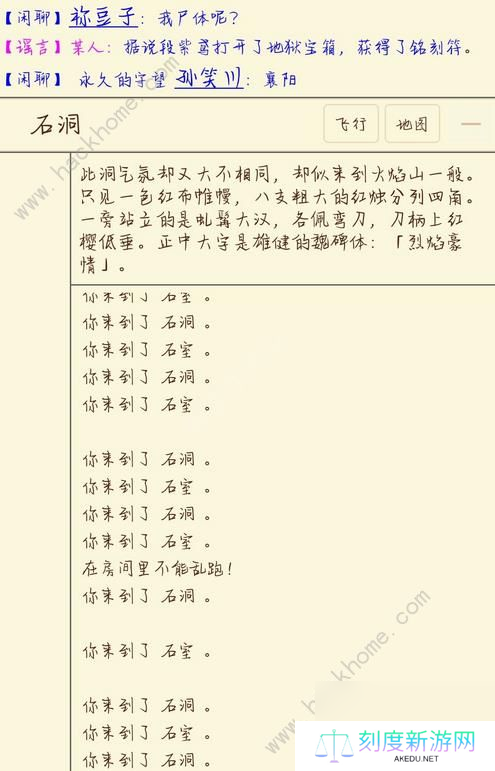 【闲聊】祢豆子：我尸体呢？
【谣言】某人：据说段紫鸾打开了地狱宝箱，获得了铭刻符。
【闲聊】永久的守望 孙笑川：襄阳
石洞 飞行 地图 —
此洞气氛却又大不相同，却似来到火焰山一般。
只见一色红布帷幔，八支粗大的红烛分列四角。
一旁站立的是虬髯大汉，各佩弯刀，刀柄上红
樱低垂。正中大字是雄健的魏碑体：「烈焰豪
情」。
你来到了 石室 。
你来到了 石洞 。
你来到了 石室 。
你来到了 石洞 。
你来到了 石室 。
你来到了 石洞 。
你来到了 石室 。
你来到了 石洞 。
你来到了 石室 。
在房间里不能乱跑！
你来到了 石洞 。
你来到了 石室 。
你来到了 石洞 。
你来到了 石室 。
你来到了 石洞 。
www.hackhome.com
www.hackhome.com
刻度新游网
AKEDU.NET